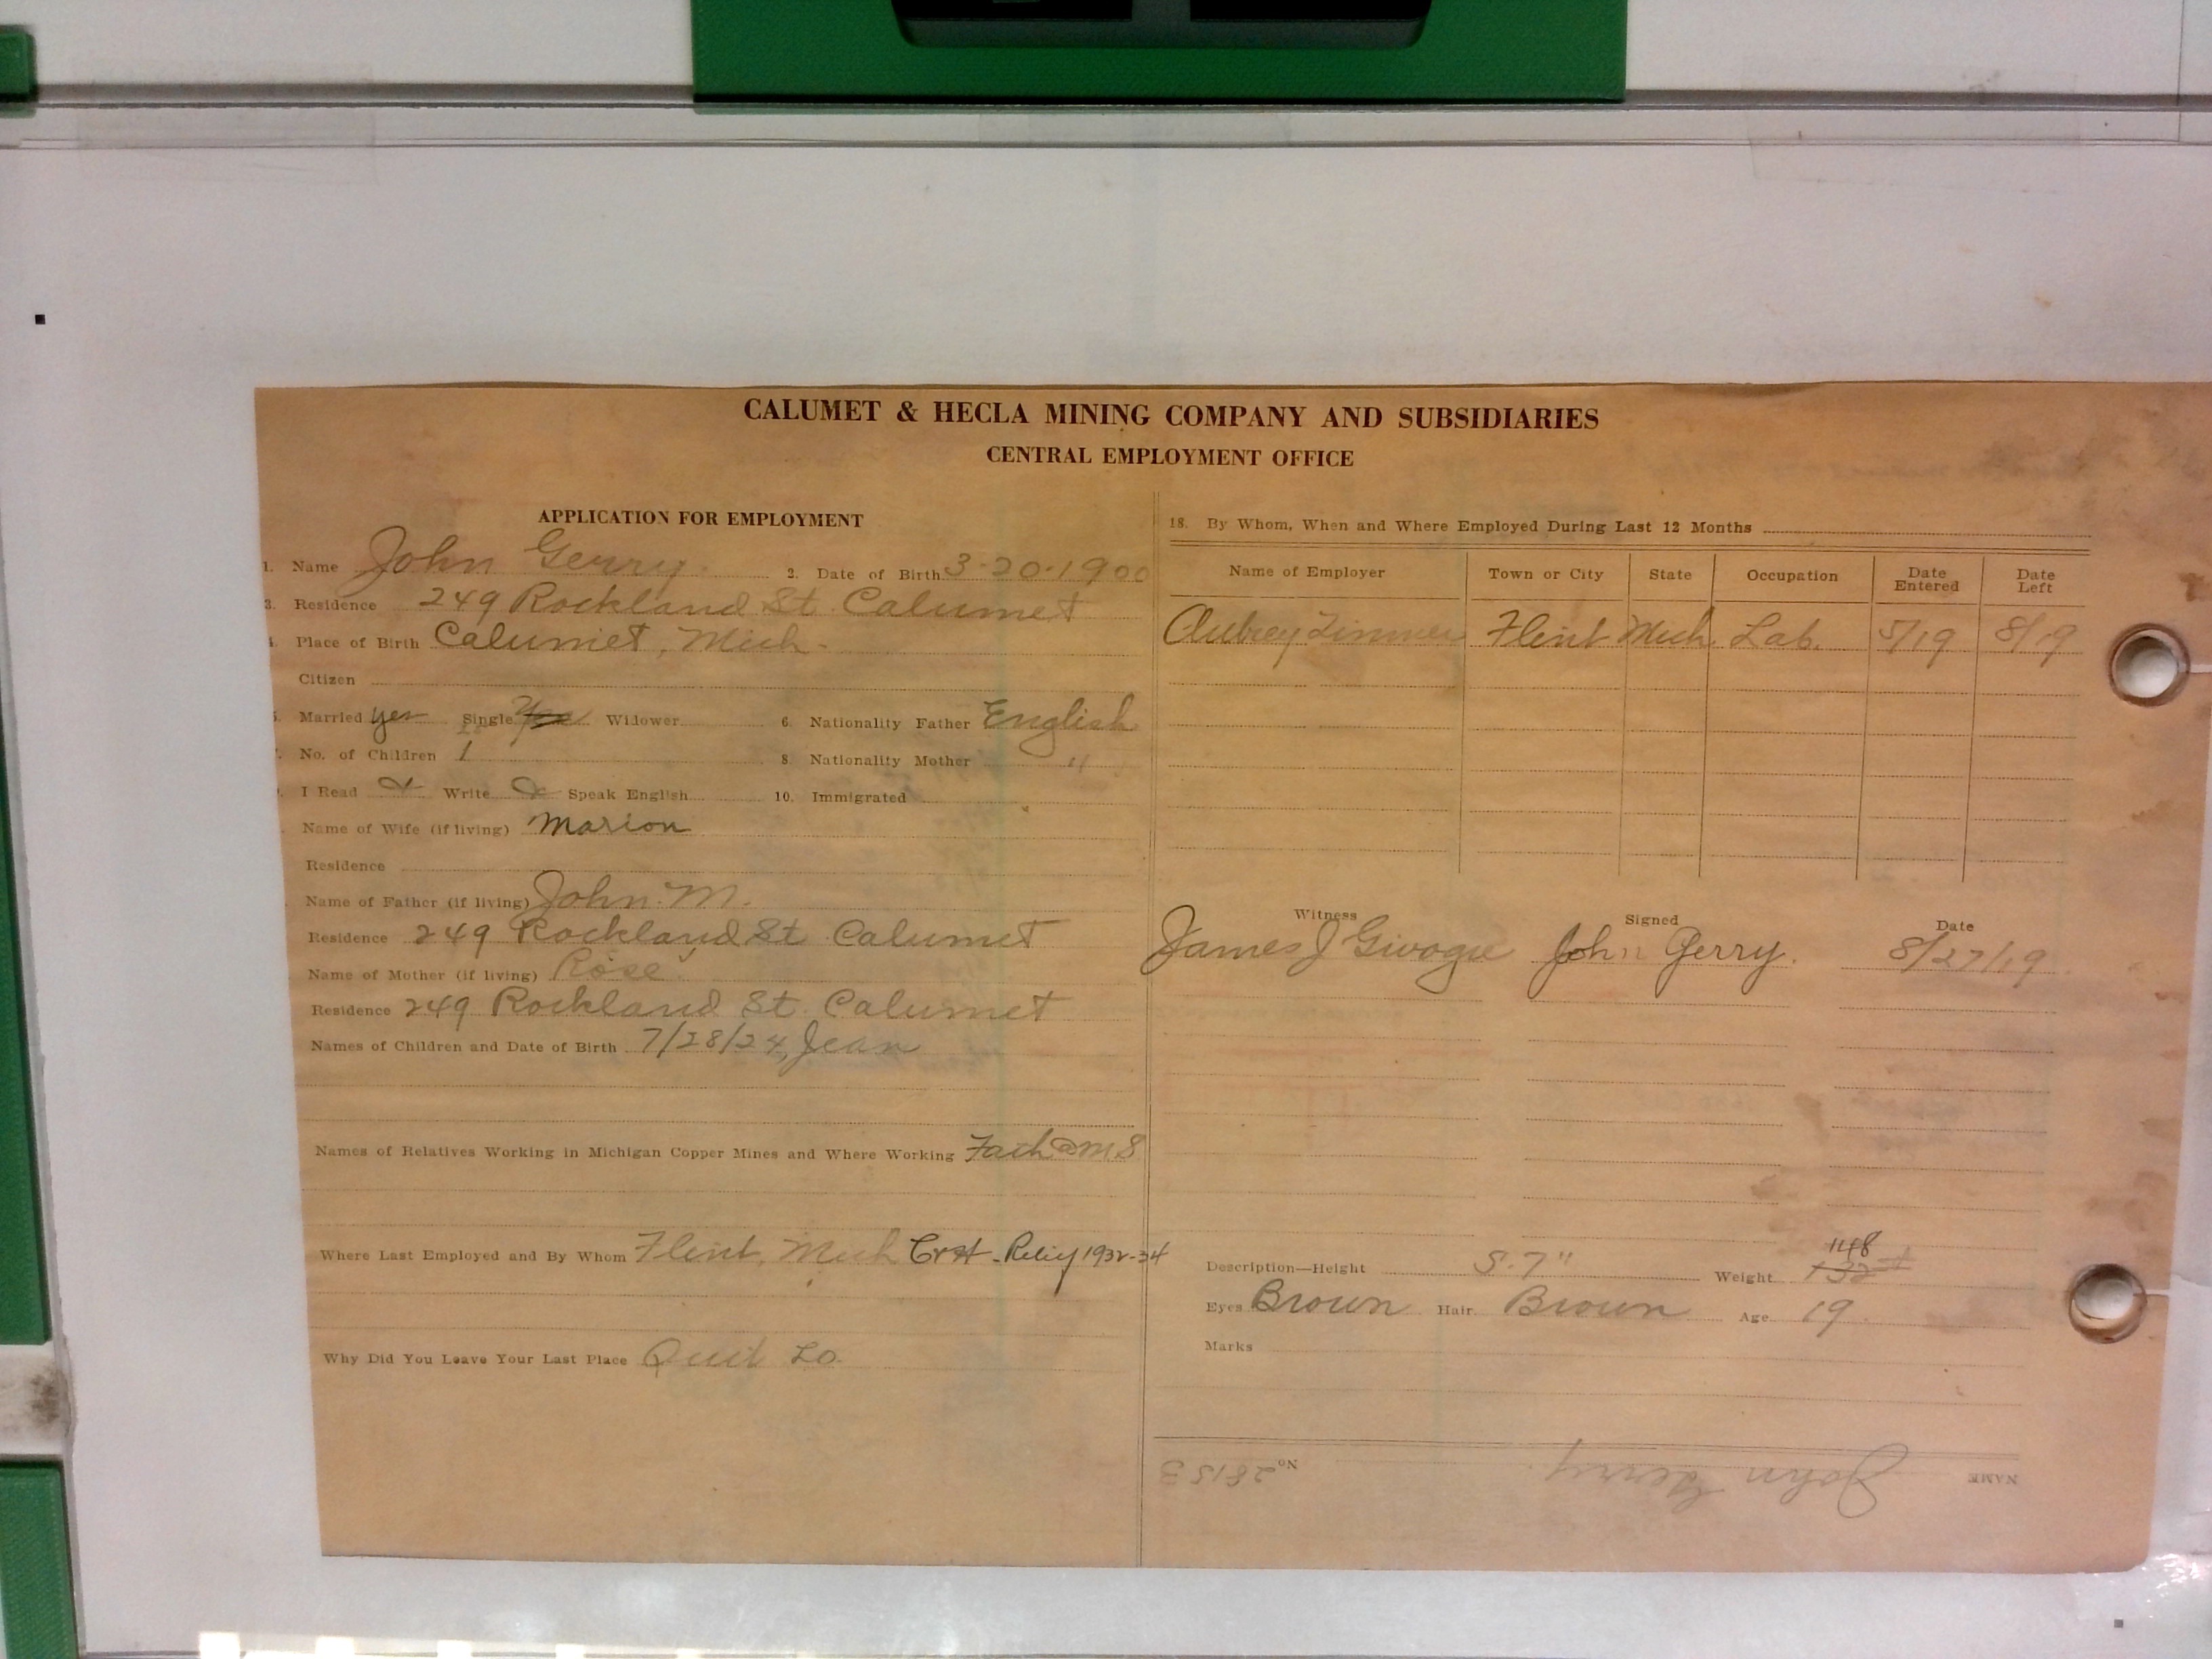 CALUMET & HECLA MINING COMPANY AND SUBSIDIARIES
CENTRAL EMPLOYMENT OFFICE
APPLICATION FOR EMPLOYMENT
1. Name John Gerry. 2. Date of Birth 3-20-1900
3. Residence 249 Rockland St. Calumet
4. Place of Birth Calumet, Mich.
Citizen
5. Married yes Single Yes Widower 6. Nationality Father English
7. No. of Children 1 8. Nationality Mother "
9. I Read Write Speak English 10. Immigrated
Name of Wife (if living) Marion
Residence
Name of Father (if living) John M.
Residence 249 Rockland St Calumet
Name of Mother (if living) Rose
Residence 249 Rockland St. Calumet
Names of Children and Date of Birth 7/28/24, Jean
Names of Relatives Working in Michigan Copper Mines and Where Working Fath @ M S
Where Last Employed and By Whom Flint, Mich C&H - Relief 1932-34
Why Did You Leave Your Last Place Quit
18. By Whom, When and Where Employed During Last 12 Months
Name of Employer Town or City State Occupation Date Entered Date Left
Aubrey Zimmer Flint Mich. Lab. 5/19 8/19
Witness Signed Date
James J John Gerry. 8/27/19
Description—Height 5-7" Weight 148 132
Eyes Brown Hair Brown Age 19
Marks
NAME John Gerry. No. 28153